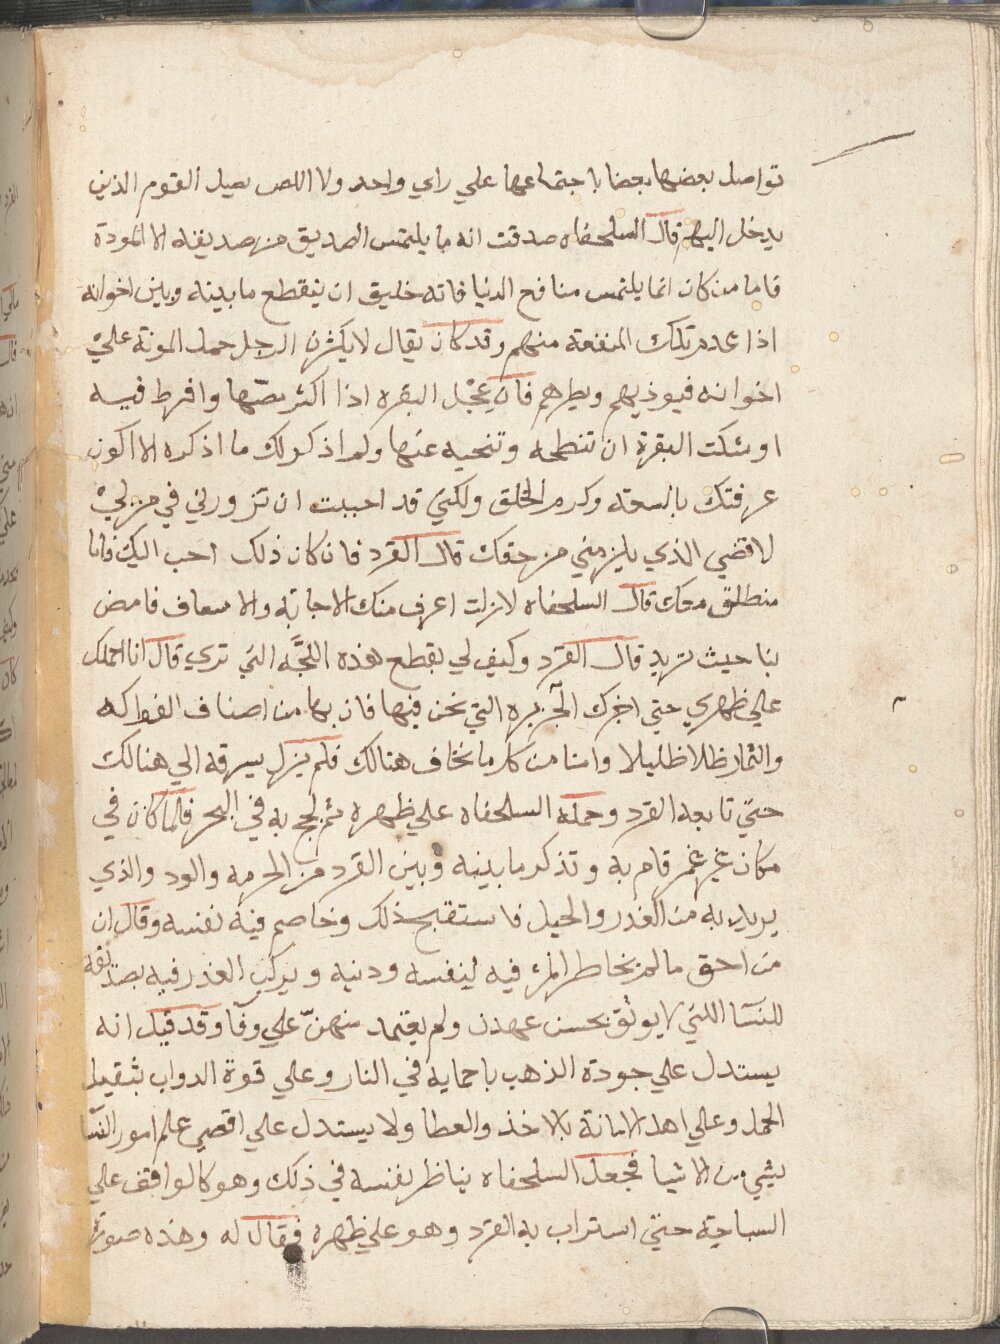 تواصل بعضها بعضا باجتماعها علي راي واحد ولا اللص يصل القوم الذين
يدخل اليهم قال السلحفاه صدقت انه ما يلتمس الصديق من صديقه الا المودة
فاما من كان انما يلتمس منافع الدنيا فانه خليق ان ينقطع ما بينه وبين اخوانه
اذا عدم تلك المنفعة منهم وقد كان يقال لا يكثرن الرجل حمل المونة علي
اخوانه فيوذيهم ويطرهم فان عجل البقره اذا اكثر مصها وافرط فيه
اوشكت البقرة ان تنطحه وتنحيه عنها ولم اذكر لك ما اذكره الا اكون
عرفتك بالسعة وكرم الخلق ولكني قد احببت ان تزورني في منزلي
لاقضي الذي يلزمني من حقك قال القرد فان كان ذلك احب اليك فانا
منطلق معك قال السلحفاه لازلت اعرف منك الاجابة والاسعاف فامض
بنا حيث تريد قال القرد وكيف لي بقطع هذه اللجَّه التي تري قال انا احملك
علي ظهري حتي اخرك الجزيره التي نحن فيها فان بها من اصناف الفواكه
والثمار ظلا ظليلا وامنا من كل ما نخاف هنالك فلم يزل يسرقه الي هنالك
حتي تابعه القرد وحمله السلحفاه علي ظهره ثم لجج به في البحر فلما كان في
مكان غير غمر قام به وتذكر ما بينه وبين القرد من الحرمه والود والذي
يريد به من الغدر والحيل فاستقبح ذلك وخاصم فيه نفسه وقال ان
من احق ما لم يخاطر المرء فيه لنفسه ودنيه ويركب الغدر فيه بصديقه
للنسا اللتي لا يوثق بحسن عهدن ولم يعتمد منهنّ علي وفا وقد قيل انه
يستدل علي جودة الذهب باحمايه في النار وعلي قوة الدواب بثقيل
الحمل وعلي اهل الامانة بالاخذ والعطا ولا يستدل علي اقصي علم امور النسا
بشي من الاشيا فجعل السلحفاه يناظر نفسه في ذلك وهو كالواقف علي
السباحة حتي استراب به القرد وهو علي ظهره فقال له وهذه صورته